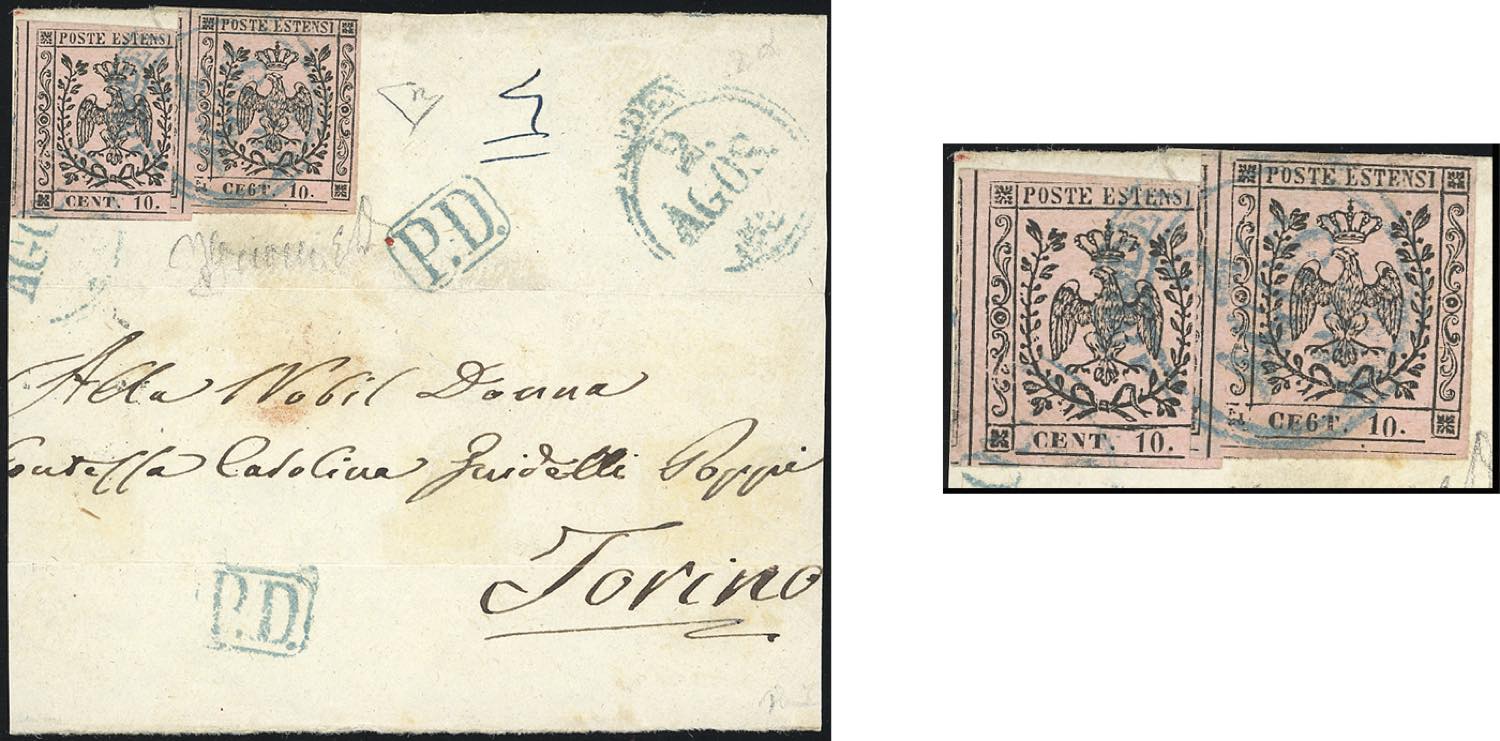 POSTE ESTENSI
CENT. 10.
POSTE ESTENSI
CE6T 10.
2.
AGOS
P.D.
AGO
Alla Nobil Donna
Contessa Carolina Guidelli Poppi
Torino
P.D.
POSTE ESTENSI
CENT. 10.
POSTE ESTENSI
CE6T. 10.